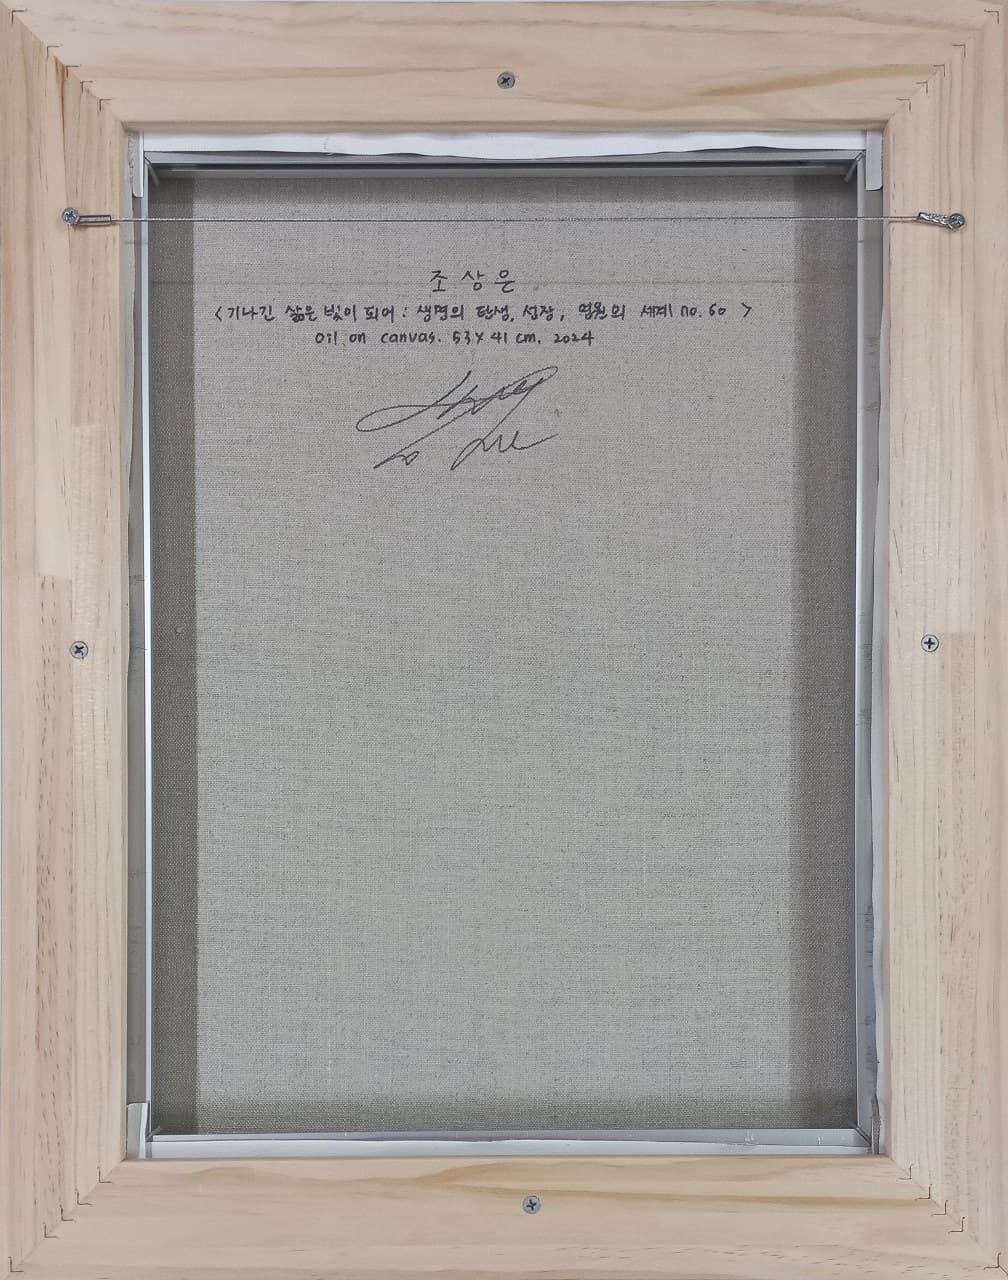 조상은
<기나긴 삶은 빛이 되어 : 생명의 탄생, 성장, 영원의 세계 no. 60>
oil on canvas. 53 x 41 cm. 2024